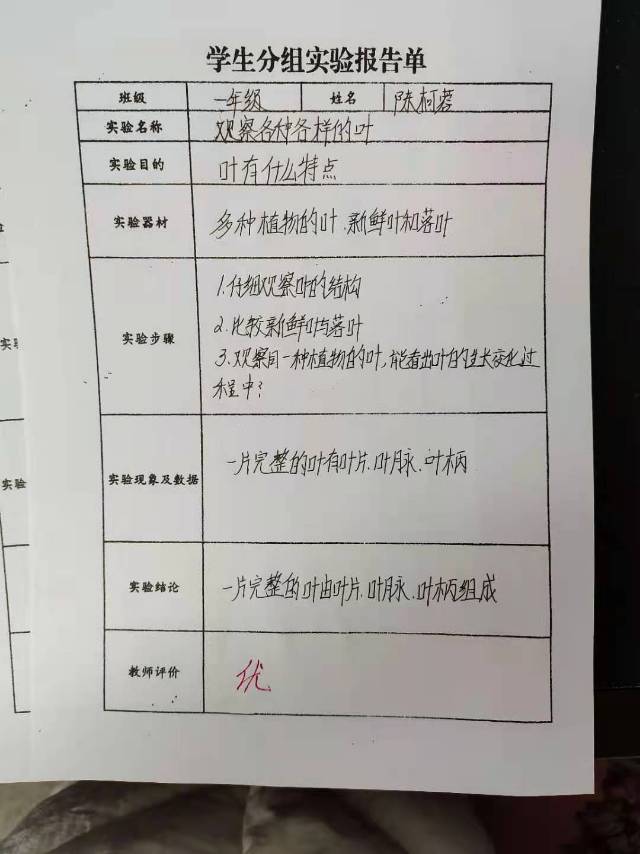 学生分组实验报告单
班级 一年级 姓名 陈柯蓉
实验名称 观察各种各样的叶
实验目的 叶有什么特点
实验器材 多种植物的叶、新鲜叶和落叶
1.仔细观察叶的结构
2.比较新鲜叶与落叶
实验步骤
3.观察同一种植物的叶,能看出叶的生长变化过
程中?
实验现象及数据 一片完整的叶有叶片、叶脉、叶柄
实验结论 一片完整的叶由叶片、叶脉、叶柄组成
教师评价 优
实
实验